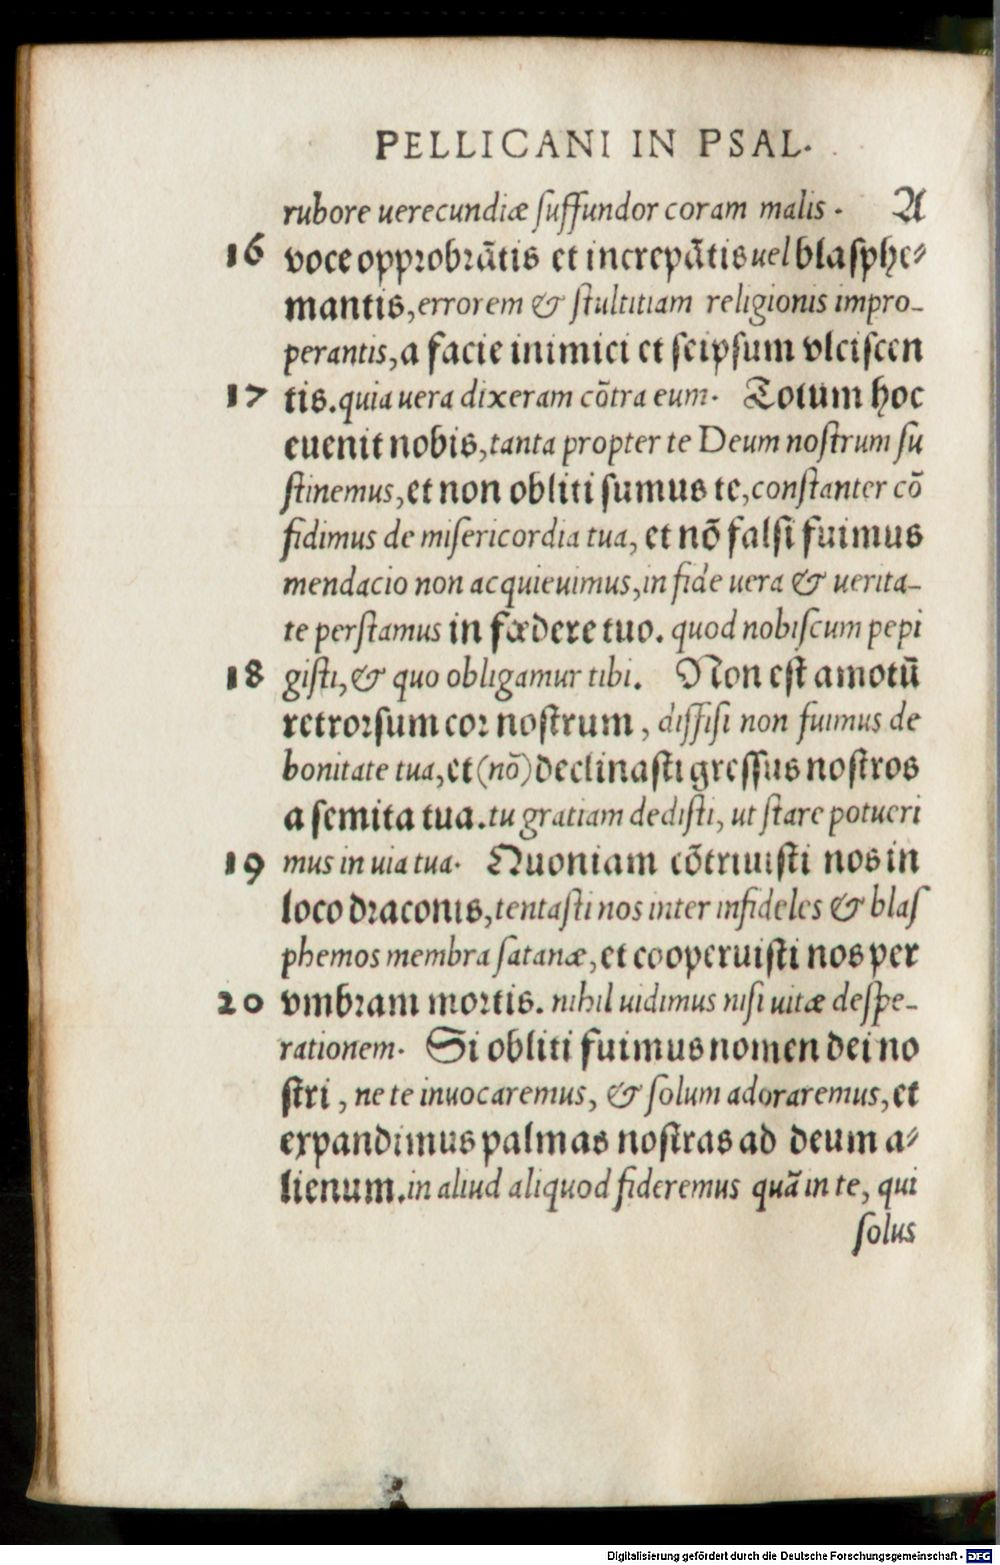 PELLICANI IN PSAL.
rubore uerecundiæ ſuffundor coram malis. A
16 voce opprobrātis et increpātis uel blaſphe⸗
mantis, errorem & ſtultitiam religionis impro-
perantis, a facie inimici et ſeipſum vlciſcen
17 tis. quia uera dixeram cōtra eum. Totum hoc
euenit nobis, tanta propter te Deum noſtrum ſu
ſtinemus, et non obliti ſumus te, conſtanter cō
fidimus de miſericordia tua, et nō falſi fuimus
mendacio non acquieuimus, in fide uera & uerita-
te perſtamus in fœdere tuo. quod nobiſcum pepi
18 giſti, & quo obligamur tibi. Non eſt amotū
retrorſum cor noſtrum, diffiſi non fuimus de
bonitate tua, et (nō) declinaſti greſſus noſtros
a ſemita tua. tu gratiam dediſti, ut ſtare potueri
19 mus in uia tua. Quoniam cōtriuiſti nos in
loco draconis, tentaſti nos inter infideles & blaſ
phemos membra ſatanæ, et cooperuiſti nos per
20 vmbram mortis. nihil uidimus niſi uitæ deſpe-
rationem. Si obliti fuimus nomen dei no
ſtri, ne te inuocaremus, & ſolum adoraremus, et
expandimus palmas noſtras ad deum a⸗
lienum. in aliud aliquod fideremus quā in te, qui
ſolus
Digitalisierung gefördert durch die Deutsche Forschungsgemeinschaft - DFG